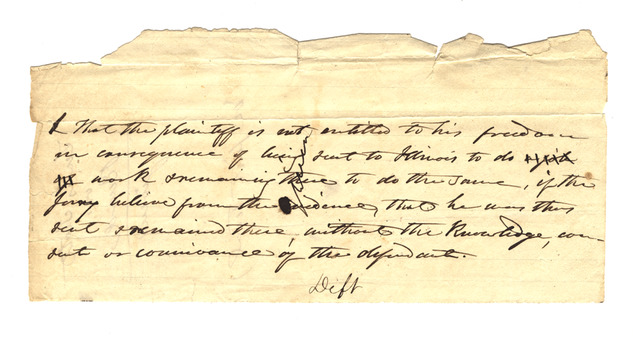 1 That the plaintiff is not entitled to his freedom
in consequence of being sent to Illinois to do
work & remaining there to do the same, if the
Jury believe from the evidence, that he was thus
sent & remained there, without the Knowledge, con-
sent or connivance of the defendant.
Deft